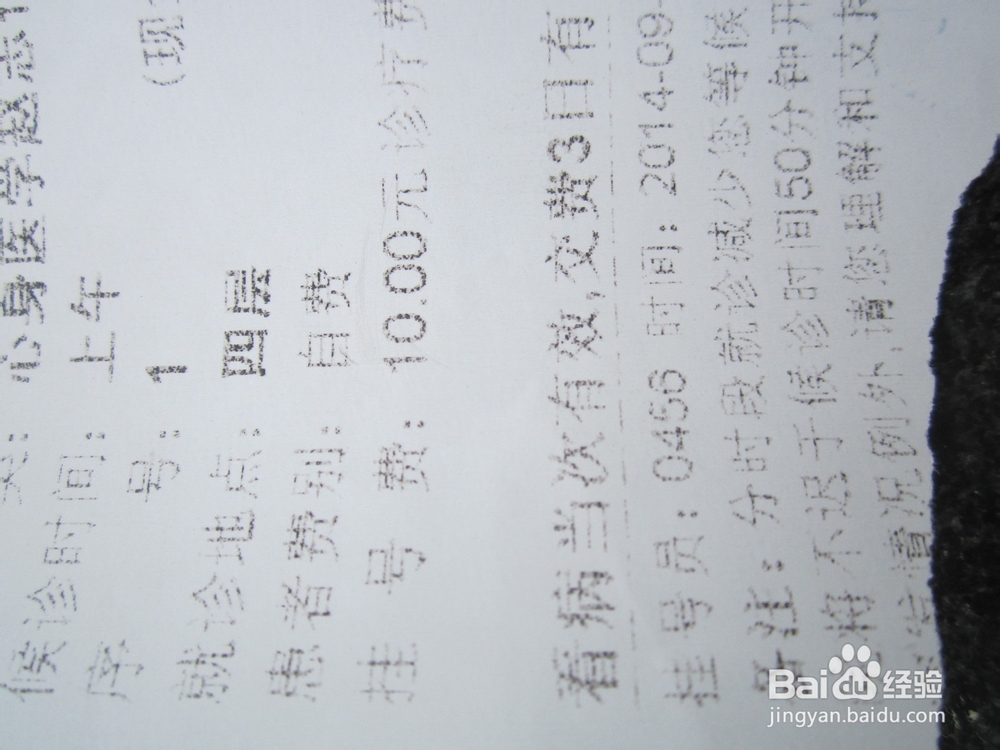 心身医学赵志
(现
候诊时间: 上午
序 号: 1
就诊地点: 四层
患者费别: 自费
挂 号 费: 10.00元 诊疗费
看病当次有效,交费3日有
挂号员: 0456 时间: 2014-09-
备注: 分时段就诊减少您等候
将不迟于候诊时间50分钟
行情况例外,请您理解和支持
Baidu经验
jingyan.baidu.com